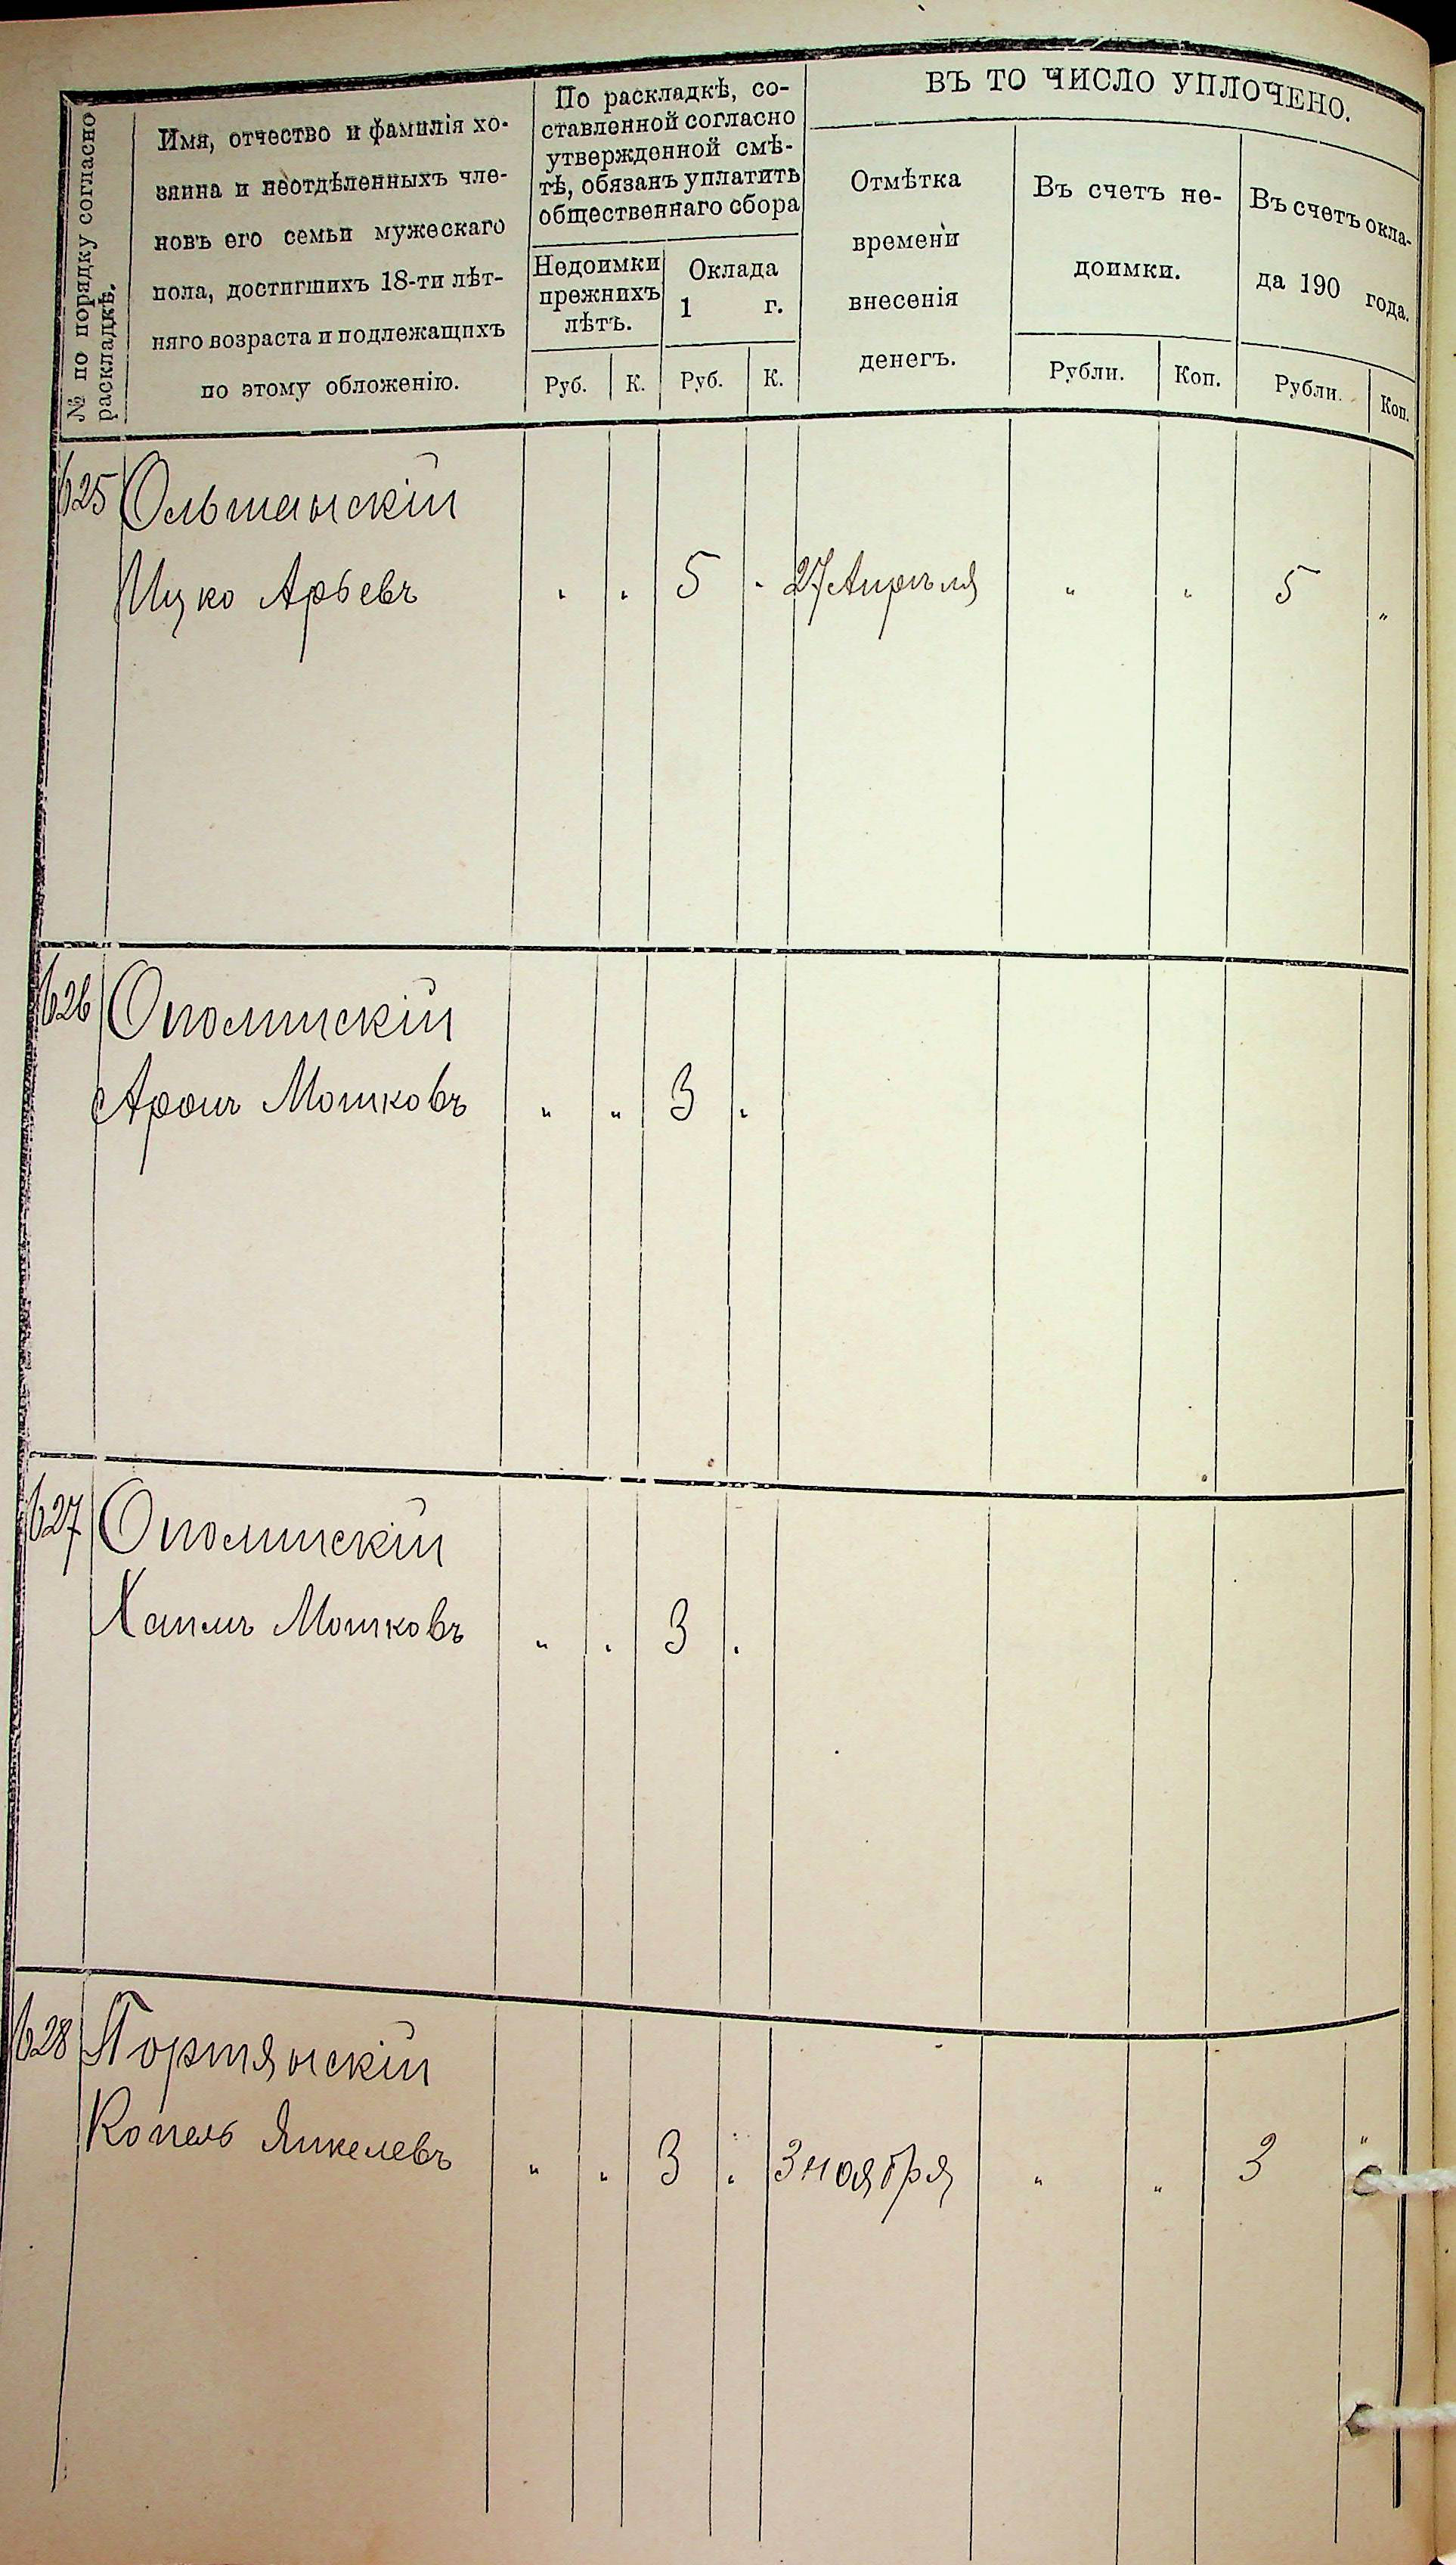 № по порядку согласно
раскладкѣ.
Имя, отчество и фамилія хо-
зяина и неотдѣленныхъ чле-
новъ его семьи мужескаго
пола, достигшихъ 18-ти лѣт-
няго возраста и подлежащихъ
по этому обложенію.
По раскладкѣ, со-
ставленной согласно
утвержденной смѣ-
тѣ, обязанъ уплатить
общественнаго сбора
Недоимки
прежнихъ
лѣтъ.
Руб. К.
Оклада
1 г.
Руб. К.
ВЪ ТО ЧИСЛО УПЛОЧЕНО.
Отмѣтка
времени
внесенія
денегъ.
Въ счетъ не-
доимки.
Рубли. Коп.
Въ счетъ окла-
да 190 года.
Рубли. Коп.
625 Ольшанскій
Ицко Арьевъ " " 5 " 27 Апрѣля " " 5 "
626 Ополинскій
Аронъ Мошковъ " " 3 "
627 Ополинскій
Хаимъ Мошковъ " " 3 "
628 Портянскій
Копель Янкелевъ " " 3 " 3 ноября " " 3 "